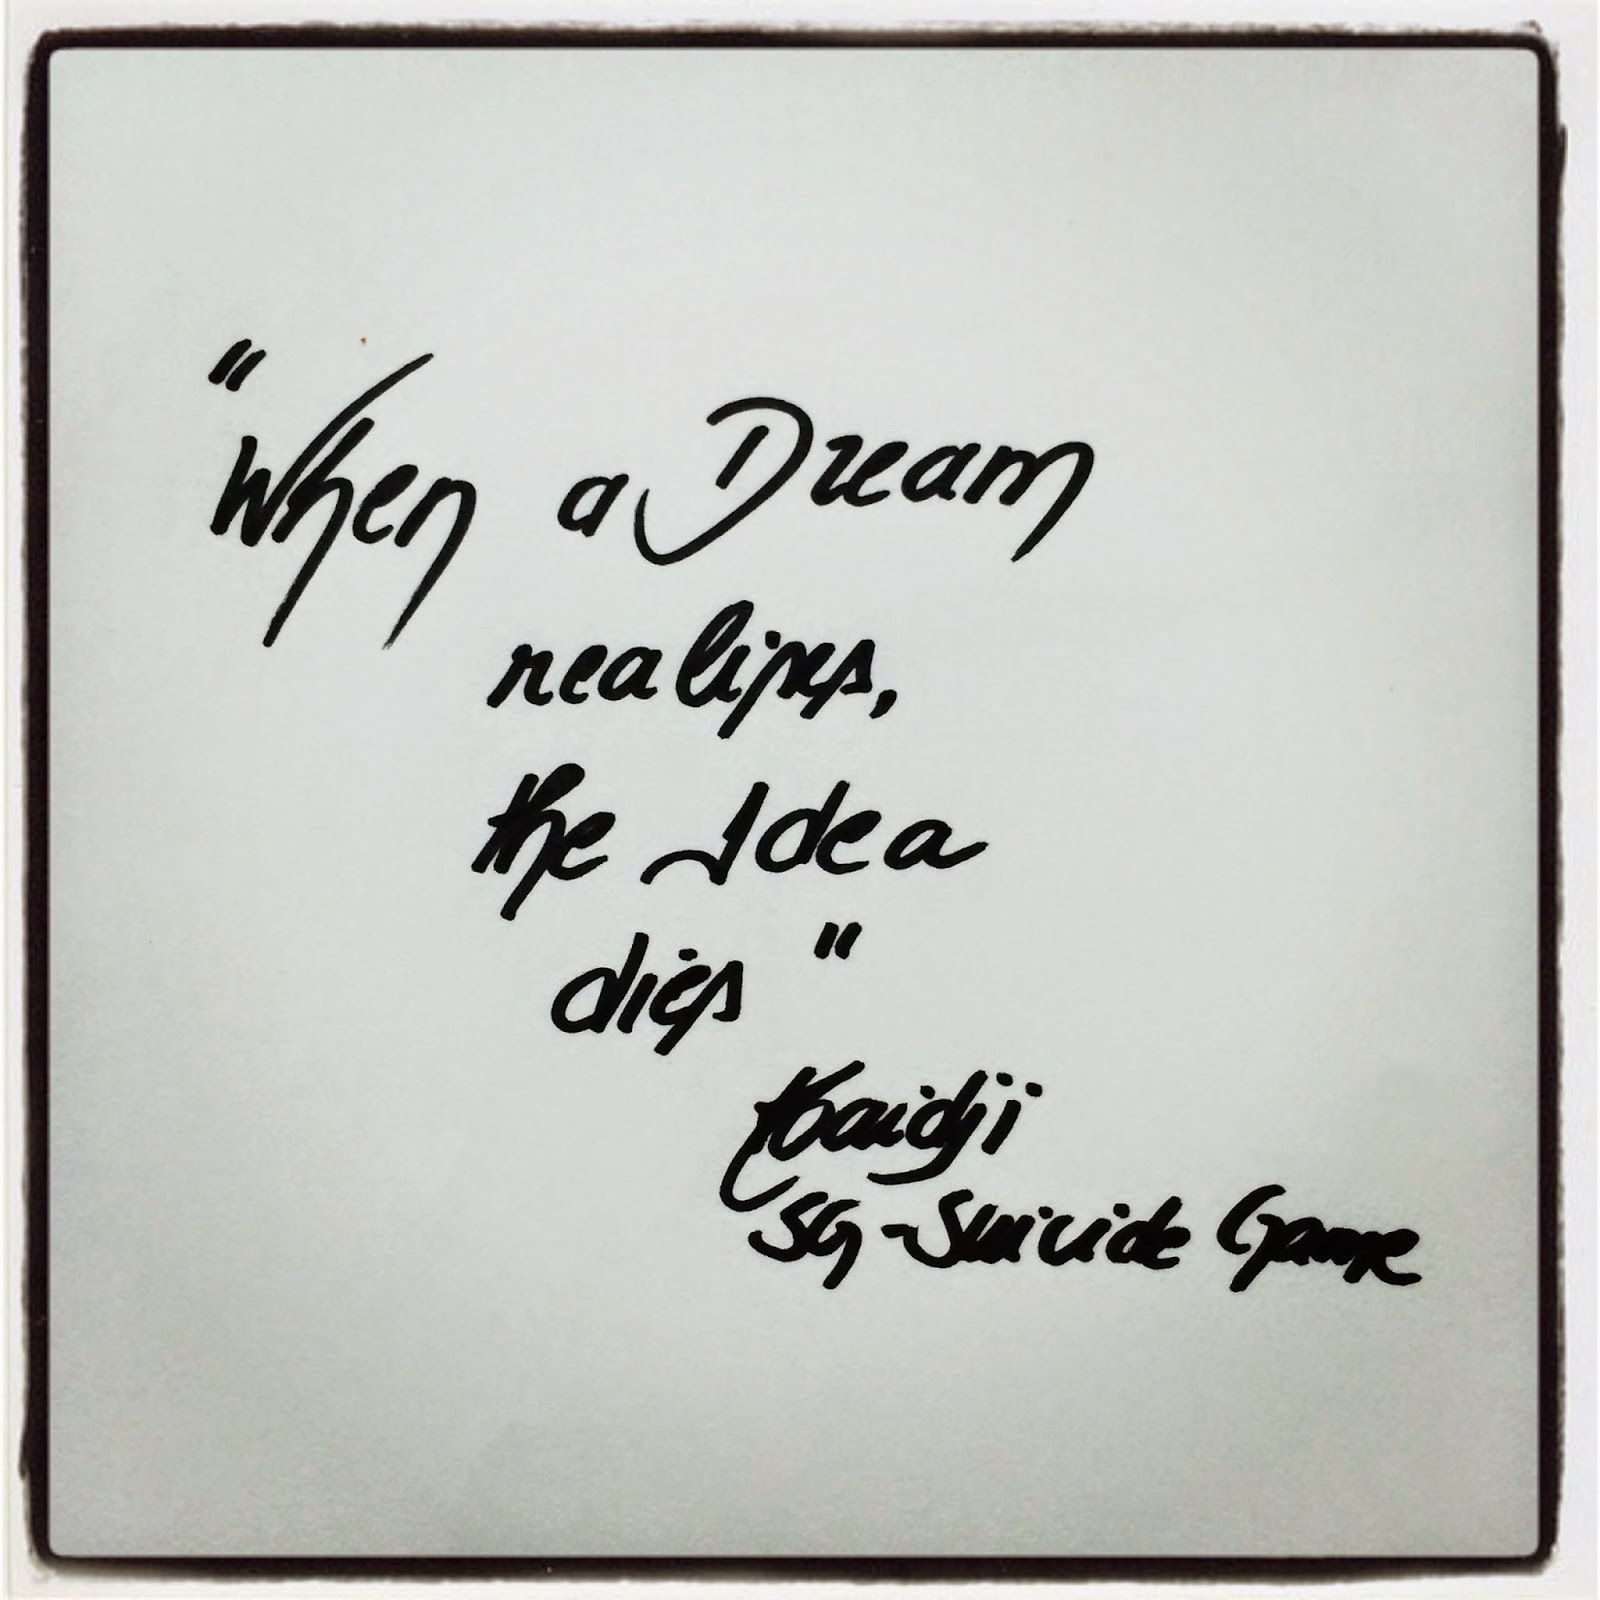 "When a Dream
realizes,
the Idea
dies"
Kaidji
SG-Suicide Game